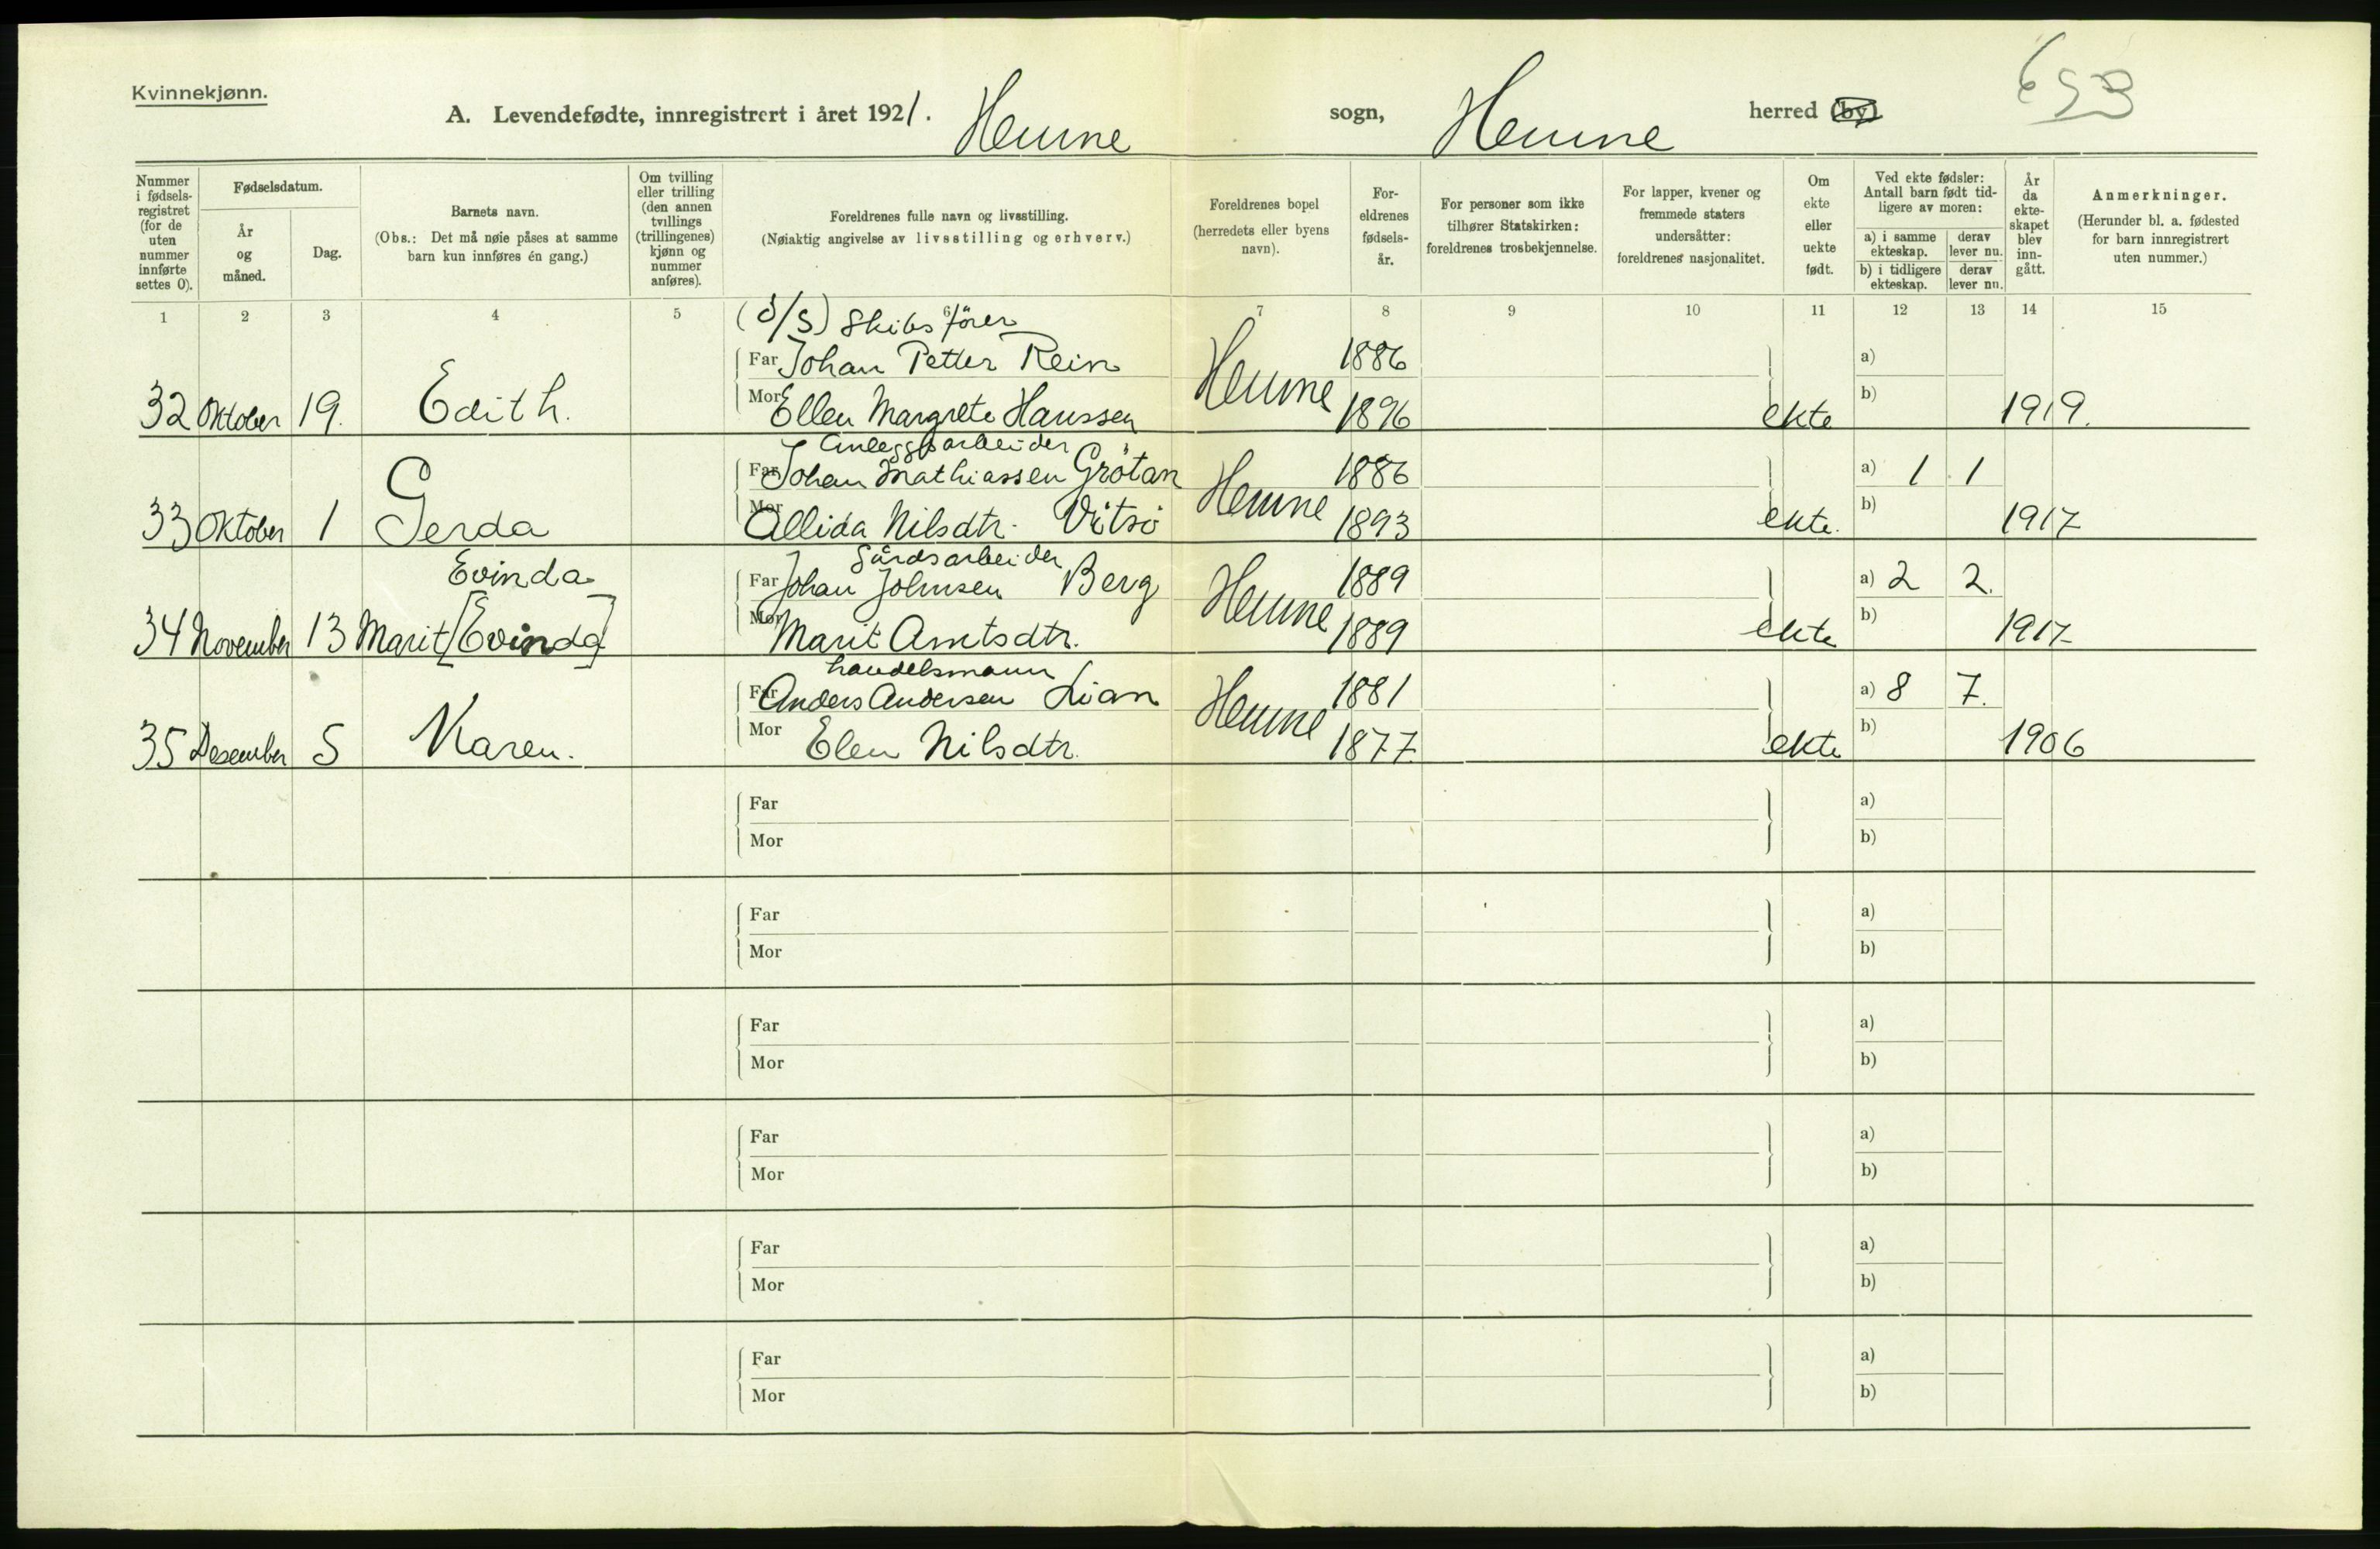 Kvinnekjønn.
653
A. Levendefødte, innregistrert i året 1921. Hemne sogn, Hemne herred (by)
Nummer i fødselsregistret (for de uten nummer innførte settes 0).
Fødselsdatum.
År og måned.
Dag.
Barnets navn.
(Obs.: Det må nøie påses at samme barn kun innføres én gang.)
Om tvilling eller trilling (den annen tvillings (trillingenes) kjønn og nummer anføres).
Foreldrenes fulle navn og livsstilling.
(Nøiaktig angivelse av livsstilling og erhverv.)
Foreldrenes bopel (herredets eller byens navn).
Foreldrenes fødselsår.
For personer som ikke tilhører Statskirken: foreldrenes trosbekjennelse.
For lapper, kvener og fremmede staters undersåtter: foreldrenes nasjonalitet.
Om ekte eller uekte født.
Ved ekte fødsler: Antall barn født tidligere av moren:
a) i samme ekteskap. derav lever nu.
b) i tidligere ekteskap. derav lever nu.
År da ekteskapet blev inngått.
Anmerkninger.
(Herunder bl. a. fødested for barn innregistrert uten nummer.)
1 2 3 4 5 6 7 8 9 10 11 12 13 14 15
(d/s) Skibsfører
Far Johan Petter Rein 1886 a)
32 Oktober 19. Edith. Mor Ellen Margrete Hanssen Hemne 1896 ekte b) 1919.
Anleggsarbeider
Far Johan Mathiassen Grötan 1886 a) 1 1
33 Oktober 1 Gerda Mor Allida Nilsdtr. Vitsö Hemne 1893 ekte. b) 1917
Gårdsarbeider
Evinda Far Johan Johnsen Berg 1889 a) 2 2.
34 November 13 Marit [Evinda] Mor Marit Arntsdtr. Hemne 1889 ekte b) 1917
handelsmann
Far Anders Andersen Lian 1881 a) 8 7.
35 Desember 5 Karen. Mor Elen Nilsdtr. Hemne 1877 ekte b) 1906
Far a)
Mor b)
Far a)
Mor b)
Far a)
Mor b)
Far a)
Mor b)
Far a)
Mor b)
Far a)
Mor b)